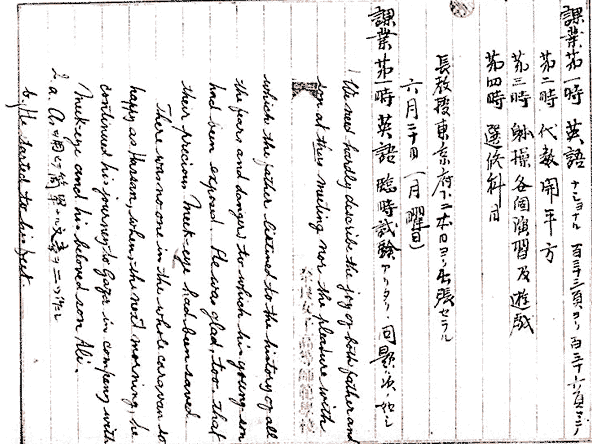 課業第一時 英語 ナショナル 百三十三頁ヨリ百三十六頁マデ
第二時 代数開平方
第三時 体操各個演習及遊戯
第四時 選修科目
長教授東京府下ニ本日ヨリ出張セラル
六月二十日(月曜日)
課業第一時 英語臨時試験アリタリ 問題次ノ如シ
1 We need hardly describe the joy of both father and
son at this meeting nor the pleasure with
which the father listened to the history of all
the fears and dangers to which his young son
had been exposed. He was glad, too that
their precious Meek-eye had been saved
There was no one in the whole caravan so
happy as Hassan, when, the next morning, he
continued his journey to Gaza in company with
Meek-eye and his beloved son Ali.
2 a. As 簡単ニ文章ニツヅレ
b. He started to his feet
奈良女子高等師範学校